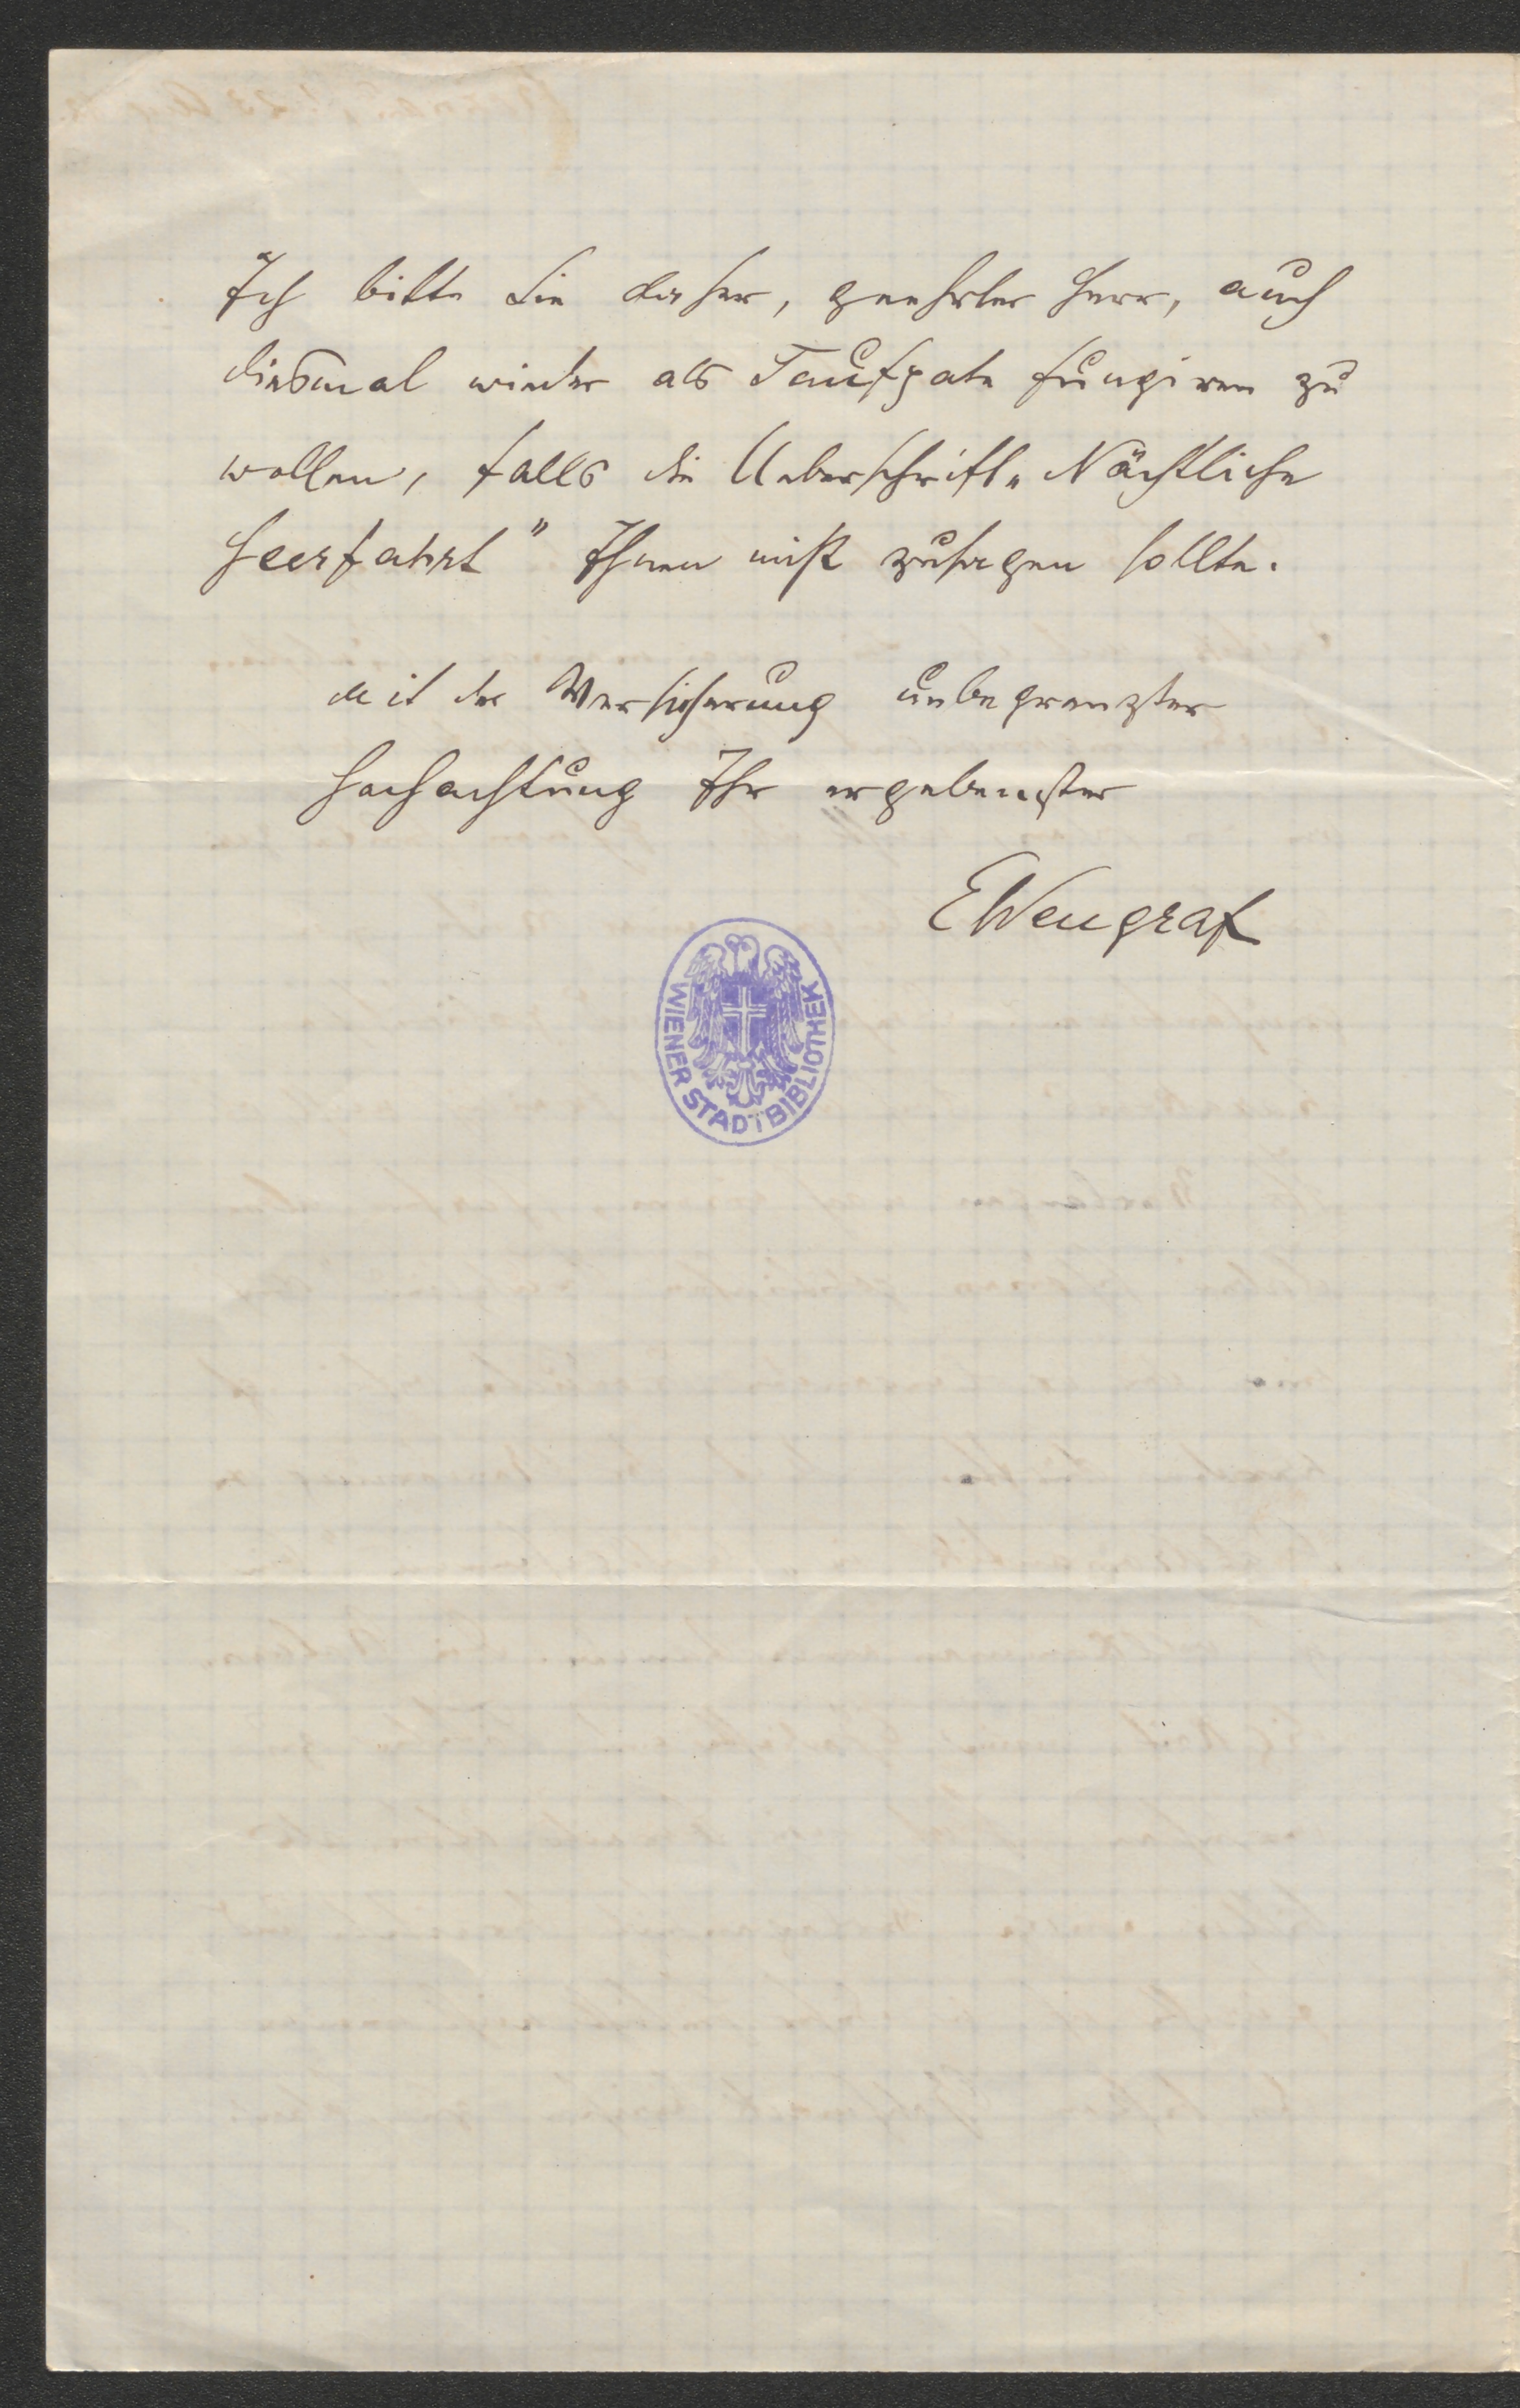 Ich bitte Sie daher, geehrter Herr, auch
diesmal wieder als Taufpate fungiren zu
wollen, falls die Ueberschrift „Nächtliche
Heerfahrt" Ihnen nicht zusagen sollte.
Mit der Versicherung unbegrenzter
Hochachtung Ihr ergebenster
EWengraf
WIENER STADTBIBLIOTHEK